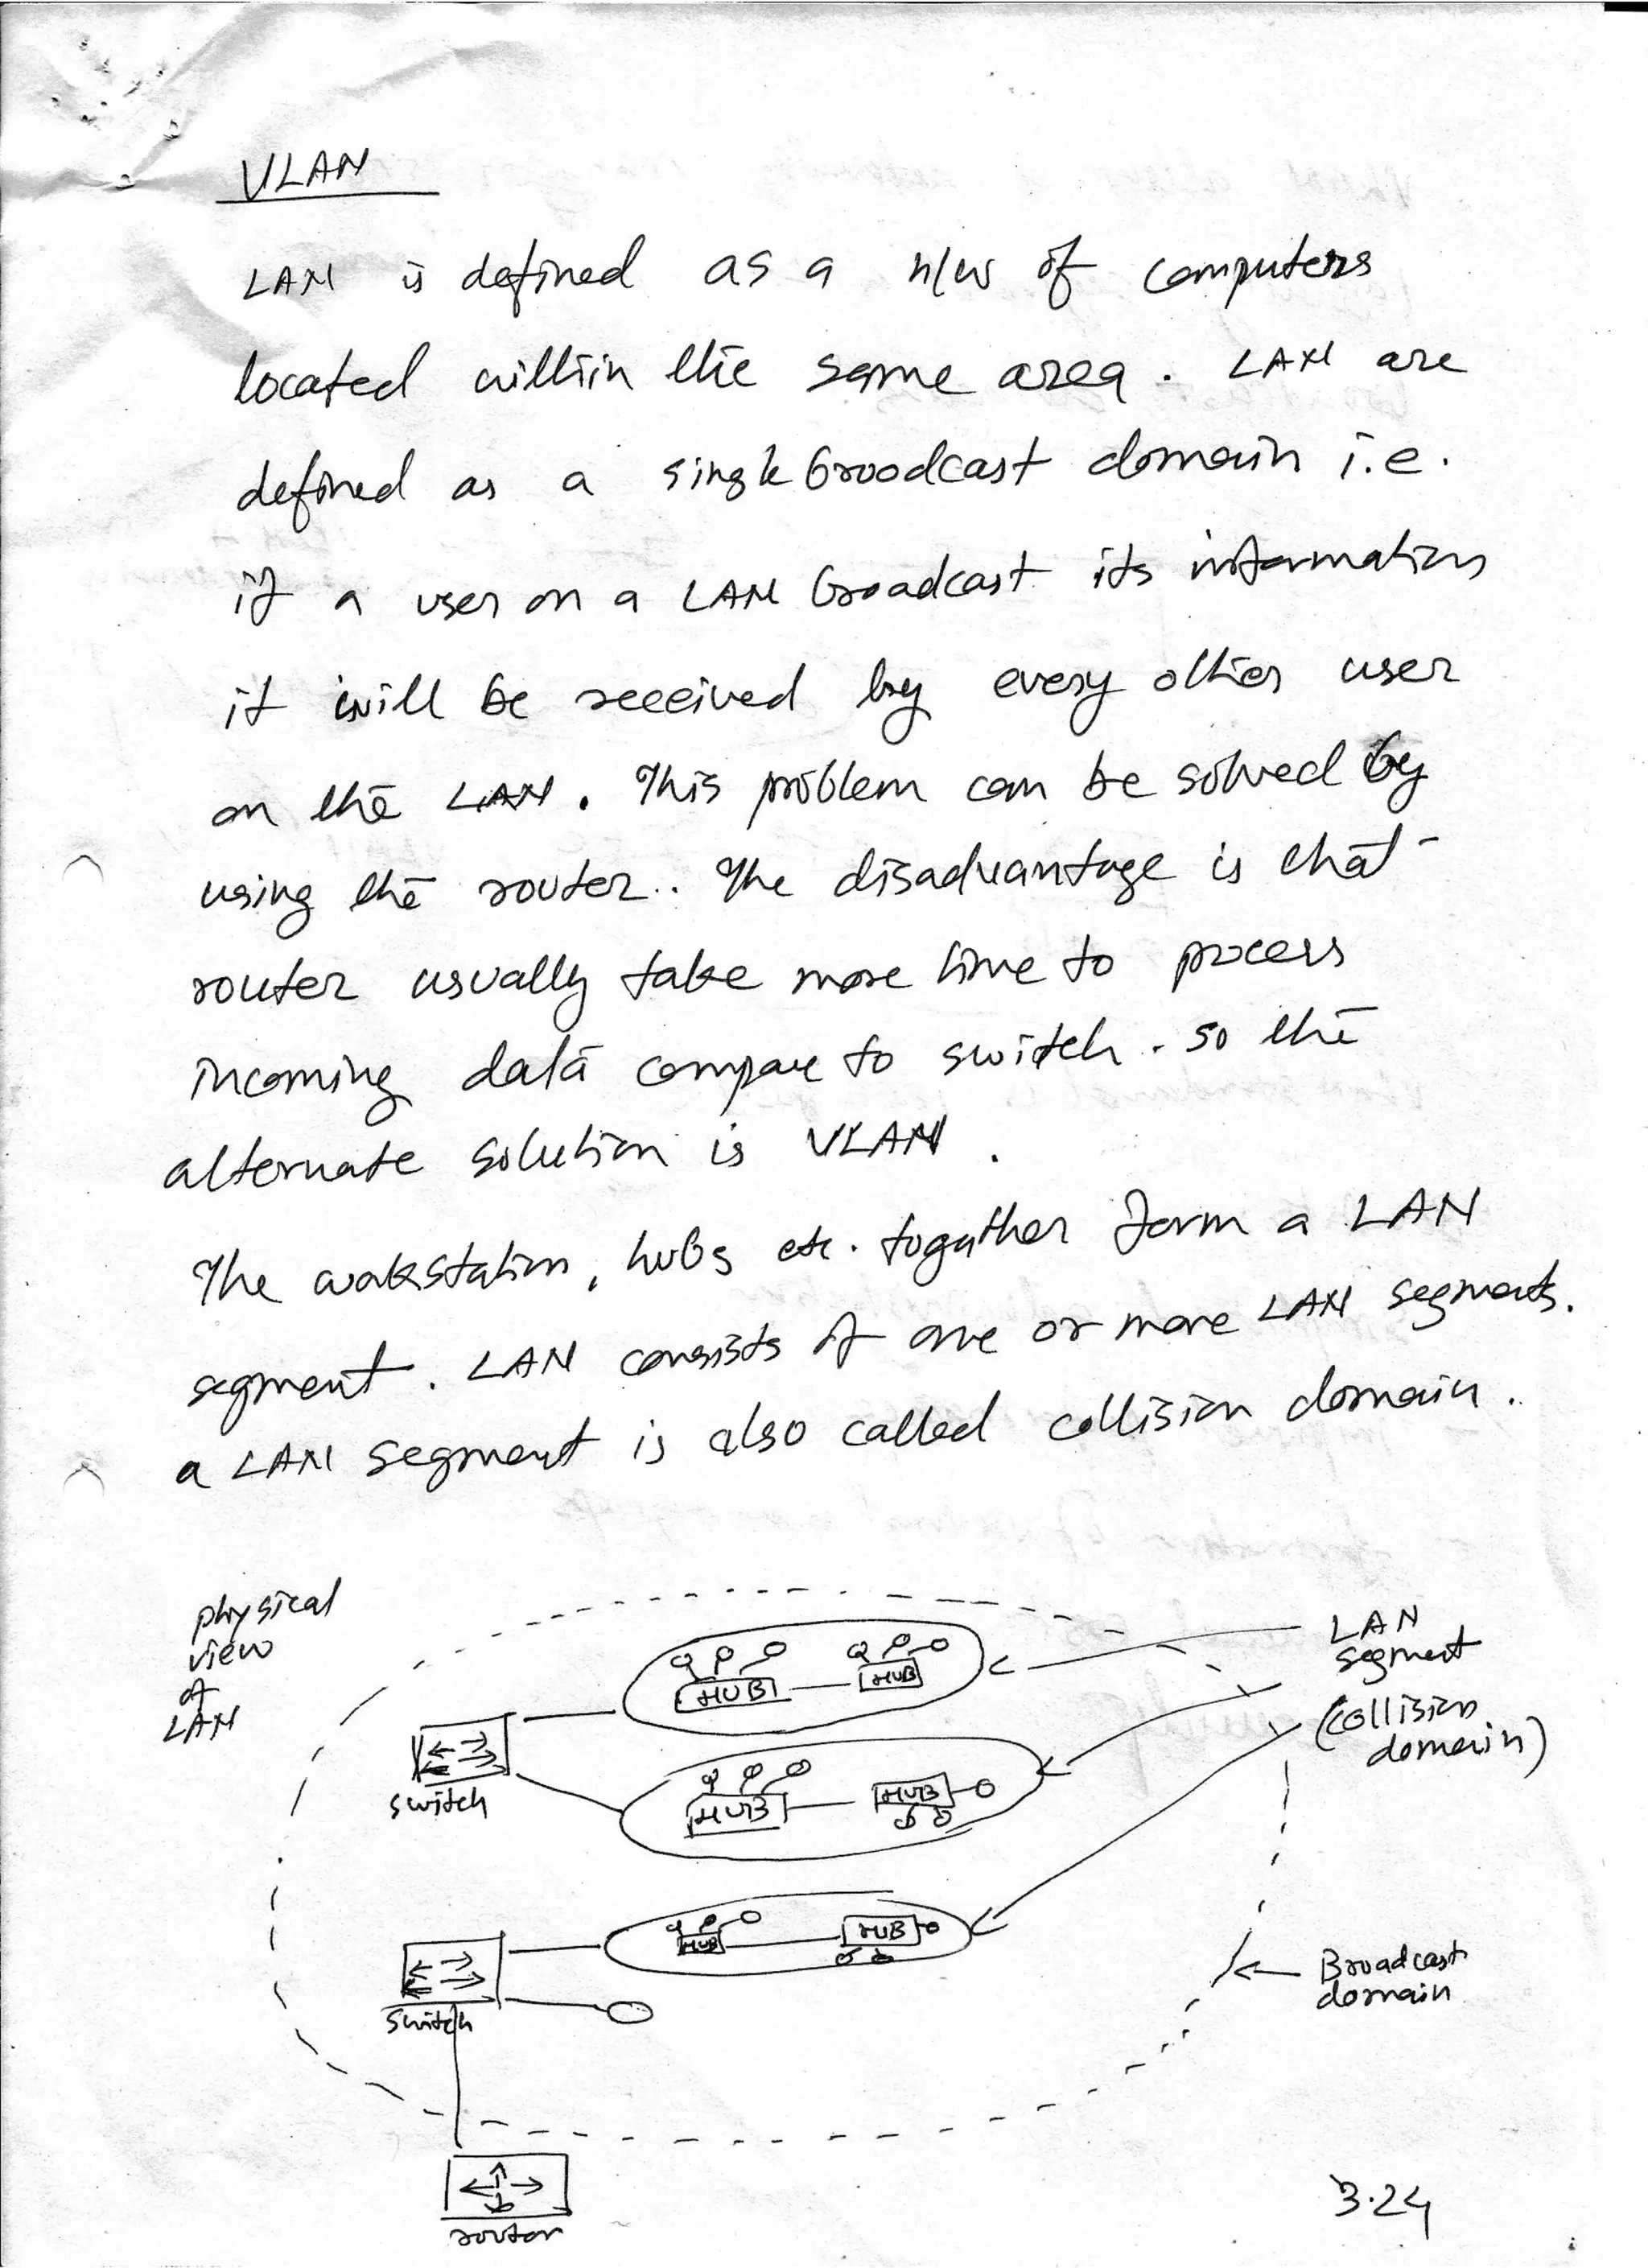 VLAN
LAN is defined as a n/w of computers
located within the same area. LAN are
defined as a single broodcast domain i.e.
if a user on a LAN broadcast its information
it will be received by every other user
on the LAN. This problem can be solved by
using the router.. The disadvantage is that
router usually take more time to process
incoming data compare to switch. so the
alternate solution is VLAN.
The workstation, hubs etc. togather form a LAN
segment. LAN consists of one or more LAN segments.
a LAN segment is also called collision domain.
physical
view
of
LAN
LAN
segment
(collision
domain)
HUB HUB
switch
HUB HUB
HUB HUB
switch
Broadcast
domain
router
3.24